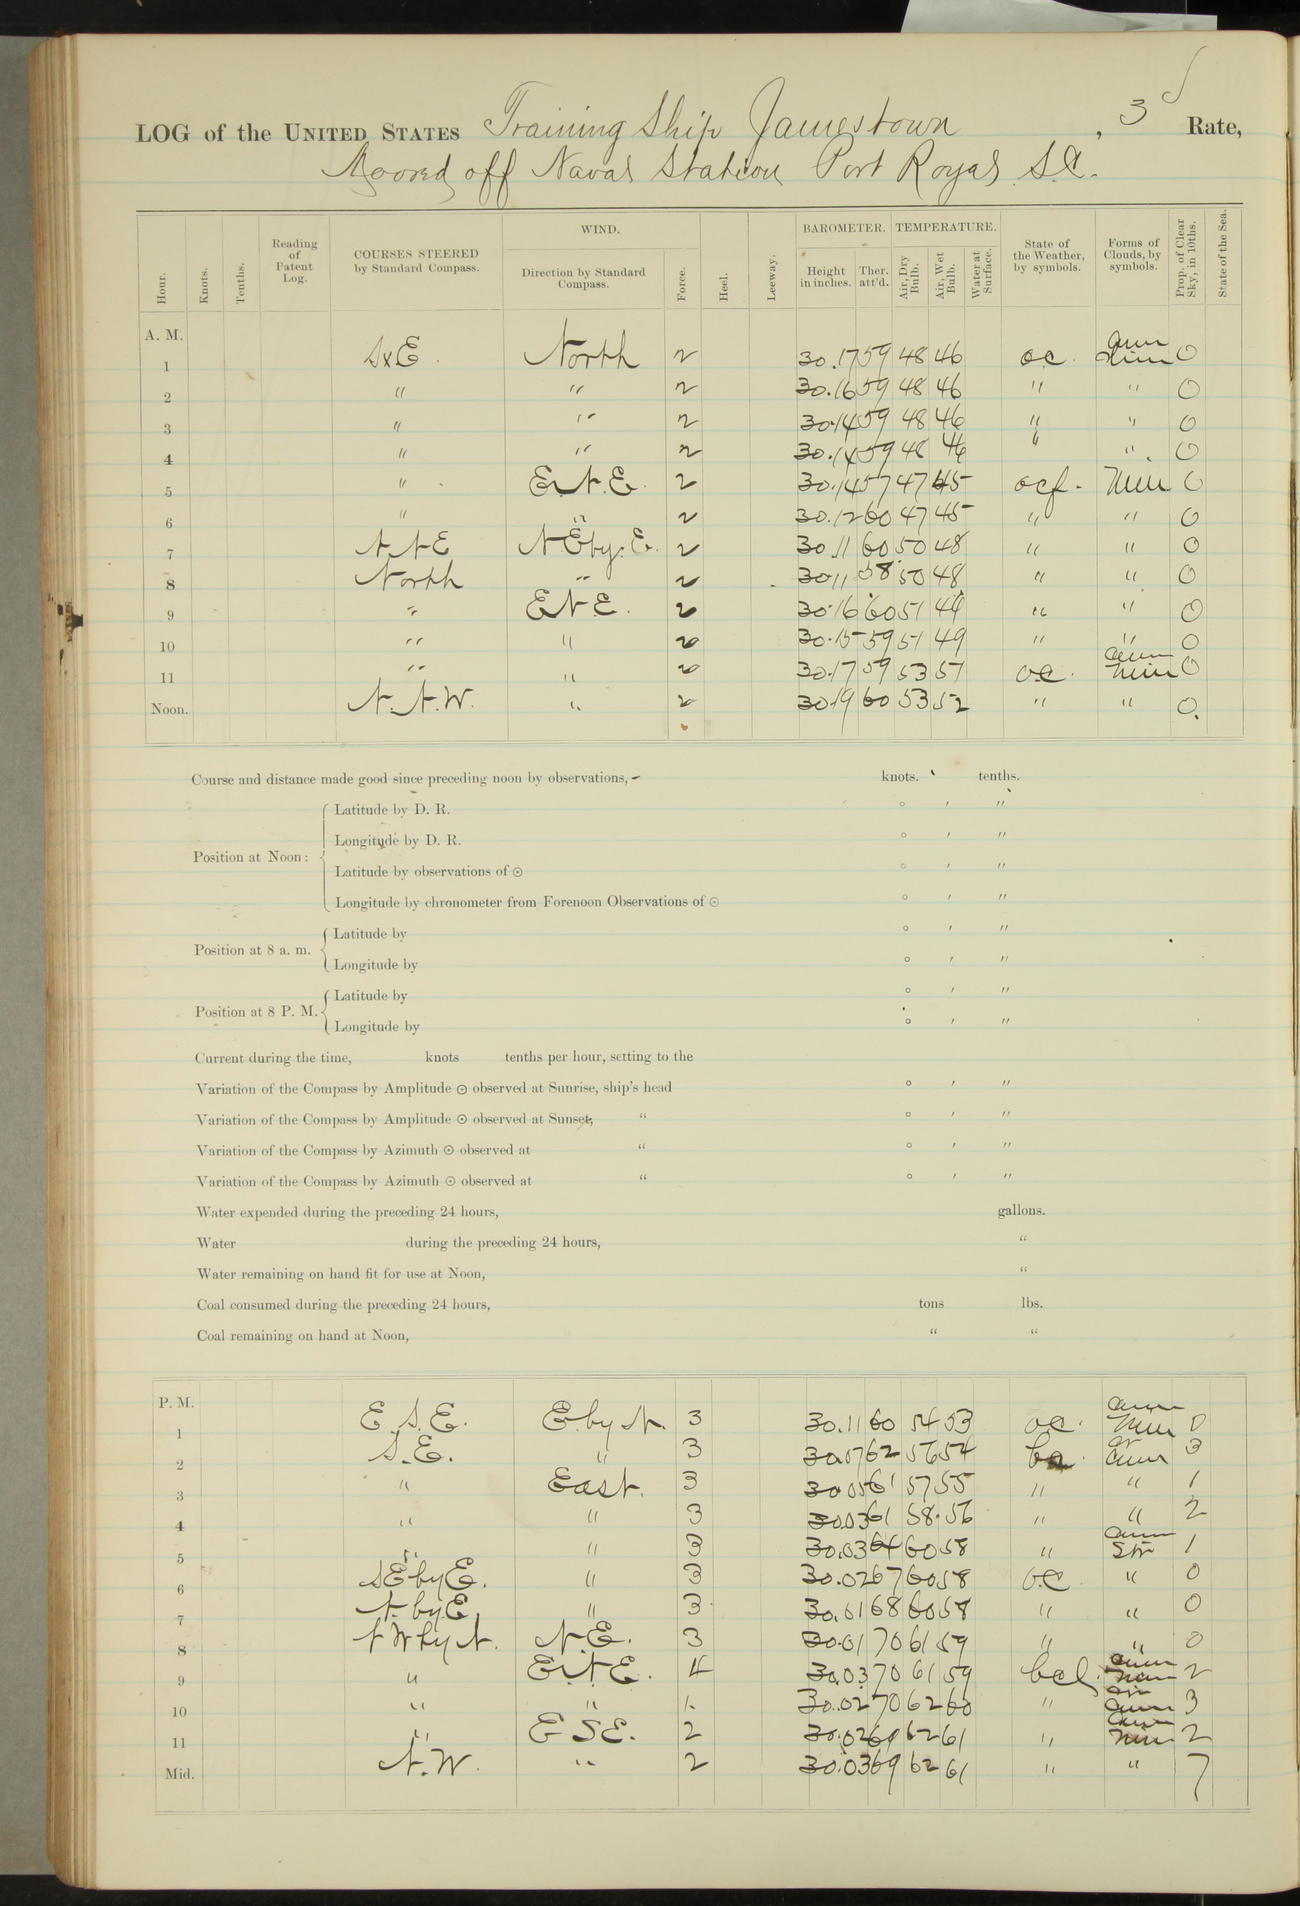 LOG of the UNITED STATES Training Ship Jamestown, 3 Rate,
Moored off Naval Station Port Royal S.C.
Hour. Knots. Tenths. Reading of Patent Log. COURSES STEERED by Standard Compass. WIND. Direction by Standard Compass. Force. Heel. Leeway. BAROMETER. Height in inches. Ther. att'd. TEMPERATURE. Air, Dry Bulb. Air, Wet Bulb. Water at Surface. State of the Weather, by symbols. Forms of Clouds, by symbols. Prop. of Clear Sky, in 10ths. State of the Sea.
A. M.
1 SxE. North 2 30.17 59 48 46 oc. Cum Nim 0
2 " " 2 30.16 59 48 46 " " 0
3 " " 2 30.14 59 48 46 " " 0
4 " " 2 30.14 59 48 46 " " 0
5 " E.N.E. 2 30.14 57 47 45 ocf. Nim 0
6 " " 2 30.12 60 47 45 " " 0
7 NNE N.E by. E. 2 30.11 60 50 48 " " 0
8 North " 2 30 11 58 50 48 " " 0
9 " ENE. 2 30.16 60 51 49 " " 0
10 " " 2 30.15 59 51 49 " " 0
11 " " 2 30.17 59 53 51 oc. Cum Nim 0
Noon. N.N.W. " 2 30.19 60 53 52 " " 0.
Course and distance made good since preceding noon by observations, knots. tenths.
Position at Noon: Latitude by D. R. ° ′ ″
Longitude by D. R. ° ′ ″
Latitude by observations of ⊙ ° ′ ″
Longitude by chronometer from Forenoon Observations of ⊙ ° ′ ″
Position at 8 a. m. Latitude by ° ′ ″
Longitude by ° ′ ″
Position at 8 P. M. Latitude by ° ′ ″
Longitude by ° ′ ″
Current during the time, knots tenths per hour, setting to the
Variation of the Compass by Amplitude ⊙ observed at Sunrise, ship's head ° ′ ″
Variation of the Compass by Amplitude ⊙ observed at Sunset, " ° ′ ″
Variation of the Compass by Azimuth ⊙ observed at " ° ′ ″
Variation of the Compass by Azimuth ⊙ observed at " ° ′ ″
Water expended during the preceding 24 hours, gallons.
Water during the preceding 24 hours, "
Water remaining on hand fit for use at Noon, "
Coal consumed during the preceding 24 hours, tons lbs.
Coal remaining on hand at Noon, " "
P. M.
1 E.S.E. E. by N. 3 30.11 60 54 53 oc. Cum Nim 0
2 S.E. " 3 30.07 62 56 54 Cum 3
3 " East. 3 30 05 61 57 55 " " 1
4 " " 3 30.03 61 58 56 " " 2
5 " " 3 30.03 64 60 58 " Cum Str 1
6 SE by E. " 3 30.02 67 60 58 oc " 0
7 N. by E. " 3 30.01 68 60 58 " " 0
8 NW by N. N.E. 3 30.01 70 61 59 " " 0
9 " E.N.E. 4 30.03 70 61 59 bcl. Cum Nim 2
10 " " 30.02 70 62 60 " Cum 3
11 " E SE. 2 30.02 69 62 61 " Cum Nim 2
Mid. N.W. " 2 30.03 69 62 61 " " 7